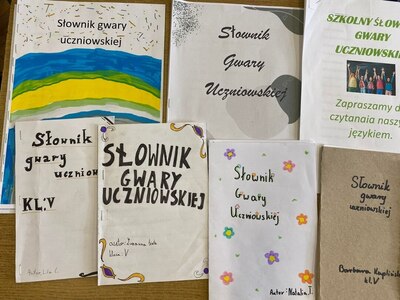 Słownik gwary
uczniowskiej
Słownik
Gwary
Uczniowskiej
SZKOLNY SŁOW
GWARY
UCZNIOWSKIE
Zapraszamy d
czytanaia nasz
językiem.
Słownik
gwary
uczniow
KL:V
Autor: Lila C.
SŁOWNIK
GWARY
UCZNIOWSKIEJ
autor: Zuzanna
klasa: V
Słownik
Gwary
Uczniowskiej
Autor: Natalia J.
Słownik
gwary
uczniowskiej
Barbara
kl.V